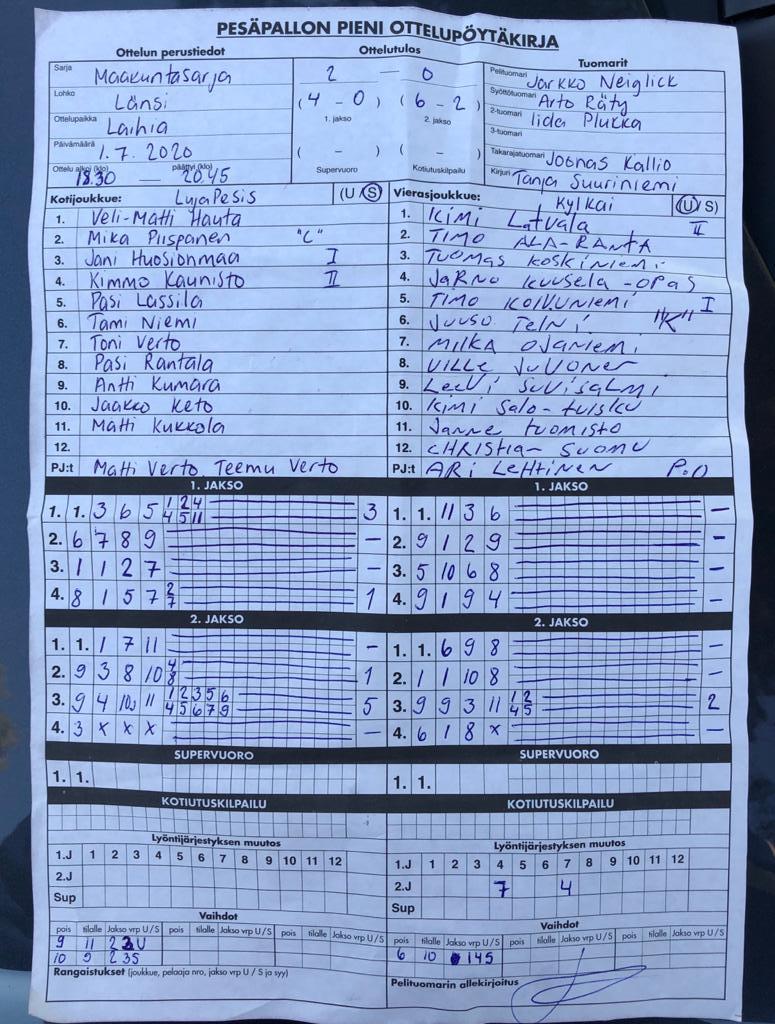 PESÄPALLON PIENI OTTELUPÖYTÄKIRJA
Ottelun perustiedot
Sarja Maakuntasarja
Lohko Länsi
Ottelupaikka Laihia
Päivämäärä 1.7.2020
Ottelu alkoi (klo) 18.30 — päättyi (klo) 20.45
Ottelutulos
2 — 0
(4 - 0) (6 - 2)
1. jakso 2. jakso
( - ) ( - )
Supervuoro Kotiutuskilpailu
Tuomarit
Pelituomari Jarkko Neiglick
Syöttötuomari Arto Räty
2-tuomari Iida Plukka
3-tuomari
Takarajatuomari Joonas Kallio
Kirjuri Tanja Suuriniemi
Kotijoukkue: LujaPesis (U/S)
1. Veli-Matti Hauta
2. Mika Piispanen "C"
3. Jani Huosionmaa I
4. Kimmo Kaunisto II
5. Pasi Lassila
6. Tami Niemi
7. Toni Verto
8. Pasi Rantala
9. Antti Kumara
10. Jaakko Keto
11. Matti Kukkola
12.
PJ:t Matti Verto, Teemu Verto
Vierasjoukkue: Kylkai (U/S)
1. KIMI LATVALA II
2. TIMO ALA-RANTA
3. TUOMAS KOSKINIEMI
4. JARNO KUUSELA-OPAS
5. TIMO KOIVUNIEMI I
6. JUUSO "K"
7. MIIKA OJANIEMI
8. VILLE JUVONEN
9. LEEVI SUVISALMI
10. KIMI SALO-TUISKU
11. JANNE TUOMISTO
12. CHRISTIAN SUOMU
PJ:t ARI LEHTINEN P.O
1. JAKSO
1. 1. 3 6 5 1 2 4 3
4 5 11
2. 6 7 8 9 –
3. 1 1 2 7 –
4. 8 1 5 7 2 1
7
2. JAKSO
1. 1. 1 7 11 –
2. 9 3 8 10 4 1
8
3. 9 4 10 11 1 2 3 5 6 5
4 5 6 7 9
4. 3 x x x –
SUPERVUORO
1. 1.
KOTIUTUSKILPAILU
Lyöntijärjestyksen muutos
1.J 1 2 3 4 5 6 7 8 9 10 11 12
2.J
Sup
Vaihdot
pois tilalle Jakso vrp U/S pois tilalle Jakso vrp U/S pois tilalle Jakso vrp U/S
9 11 2 2 U
10 9 2 3 S
Rangaistukset (joukkue, pelaaja nro, jakso vrp U / S ja syy)
1. JAKSO
1. 1. 11 3 6 –
2. 9 1 2 9 –
3. 5 10 6 8 –
4. 9 1 9 4 –
2. JAKSO
1. 1. 6 9 8 –
2. 1 1 10 8 –
3. 9 9 3 11 1 2 2
4 5
4. 6 1 8 x –
SUPERVUORO
1. 1.
KOTIUTUSKILPAILU
Lyöntijärjestyksen muutos
1.J 1 2 3 4 5 6 7 8 9 10 11 12
2.J 7 4
Sup
Vaihdot
pois tilalle Jakso vrp U/S pois tilalle Jakso vrp U/S pois tilalle Jakso vrp U/S
6 10 1 4 S
Pelituomarin allekirjoitus